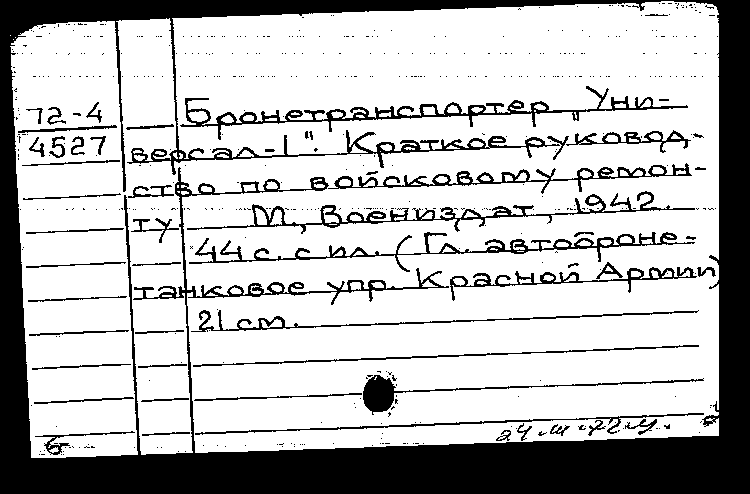 72-4
4527
Бронетранспортер „Уни-
версал-1". Краткое руковод-
ство по войсковому ремон-
ту М., Воениздат, 1942.
44 с. с ил. (Гл. автоброне-
танковое упр. Красной Армии)
21 см.
б